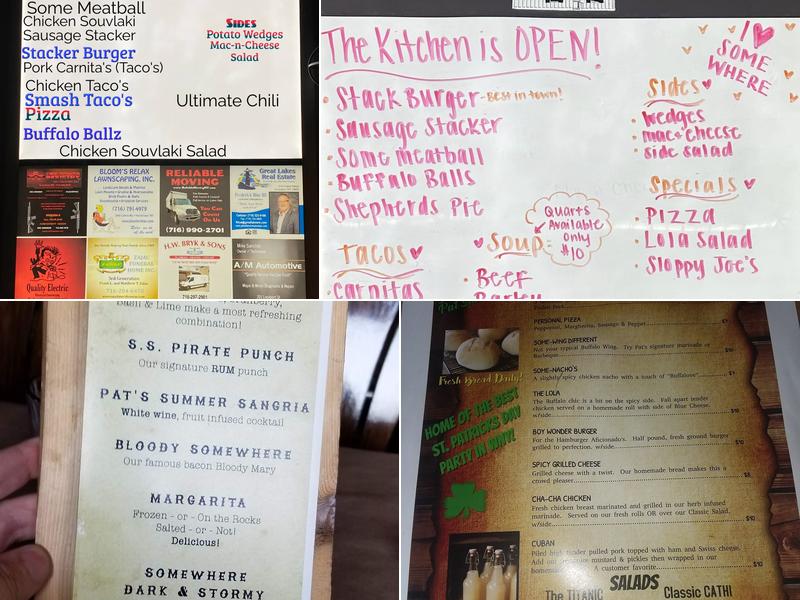 Some Meatball
Chicken Souvlaki
Sausage Stacker
Stacker Burger
Pork Carnita's (Taco's)
Chicken Taco's
Smash Taco's
Pizza
Buffalo Ballz
Chicken Souvlaki Salad
SIDES
Potato Wedges
Mac-n-Cheese
Salad
Ultimate Chili
BLOOM'S RELAX
LAWNSCAPING, INC.
(716) 791-4979
RELIABLE
MOVING
You Can
Count On
Us
(716) 990-2701
Great Lakes
Real Estate
Quality Electric
ZAJAC
FUNERAL
HOME INC.
716-284-6470
H.W. BRYK & SONS
716-297-2961
A/M Automotive
The Kitchen is OPEN!
Stack Burger - Best in town!
Sausage Stacker
Some meatball
Buffalo Balls
Shepherds Pie
Tacos
carnitas
Soup:
Beef
Barley
Quarts
Available
Only
$10
I
SOME
WHERE
Sides
wedges
mac+cheese
side salad
Specials
Pizza
Lola Salad
Sloppy Joe's
Basil & Lime make a most refreshing
combination!
S.S. PIRATE PUNCH
Our signature RUM punch
PAT'S SUMMER SANGRIA
White wine, fruit infused cocktail
BLOODY SOMEWHERE
Our famous bacon Bloody Mary
MARGARITA
Frozen - or - On the Rocks
Salted - or - Not!
Delicious!
SOMEWHERE
DARK & STORMY
Fresh Bread Daily!
HOME OF THE BEST
ST. PATRICKS DAY
PARTY IN WNY!
PERSONAL PIZZA
Pepperoni, Margherita, Sausage & Pepper
SOME-WING DIFFERENT
Not your typical Buffalo Wing. Try Pat's signature marinade or
Barbeque
SOME-NACHO'S
A slightly spicy chicken nacho with a touch of "Buffalove"
THE LOLA
The Buffalo chic is a bit on the spicy side. Fall apart tender
chicken served on a homemade roll with side of Blue Cheese.
w/side $10
BOY WONDER BURGER
For the Hamburger Aficionado's. Half pound, fresh ground burger
grilled to perfection. w/side $10
SPICY GRILLED CHEESE
Grilled cheese with a twist. Our homemade bread makes this a
crowd pleaser $8
CHA-CHA CHICKEN
Fresh chicken breast marinated and grilled in our herb infused
marinade. Served on our fresh rolls OR over our Classic Salad.
w/side $10
CUBAN
Piled high tender pulled pork topped with ham and Swiss cheese.
Add our mustard & pickles then wrapped in our
homemade A customer favorite $10
SALADS
The TITANIC Classic CATHI